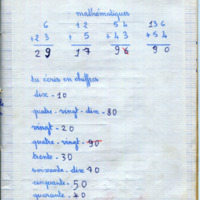 mathématiques
6 +2 54 136
+23 + 5 +43 +54
29 17 98 90
tu écris en chiffres
dix - 10
quatre - vingt - dix - 80
vingt - 20
quatre - vingt - 90
trente - 30
soixante - dix 70
cinquante - 50
quarante - 40